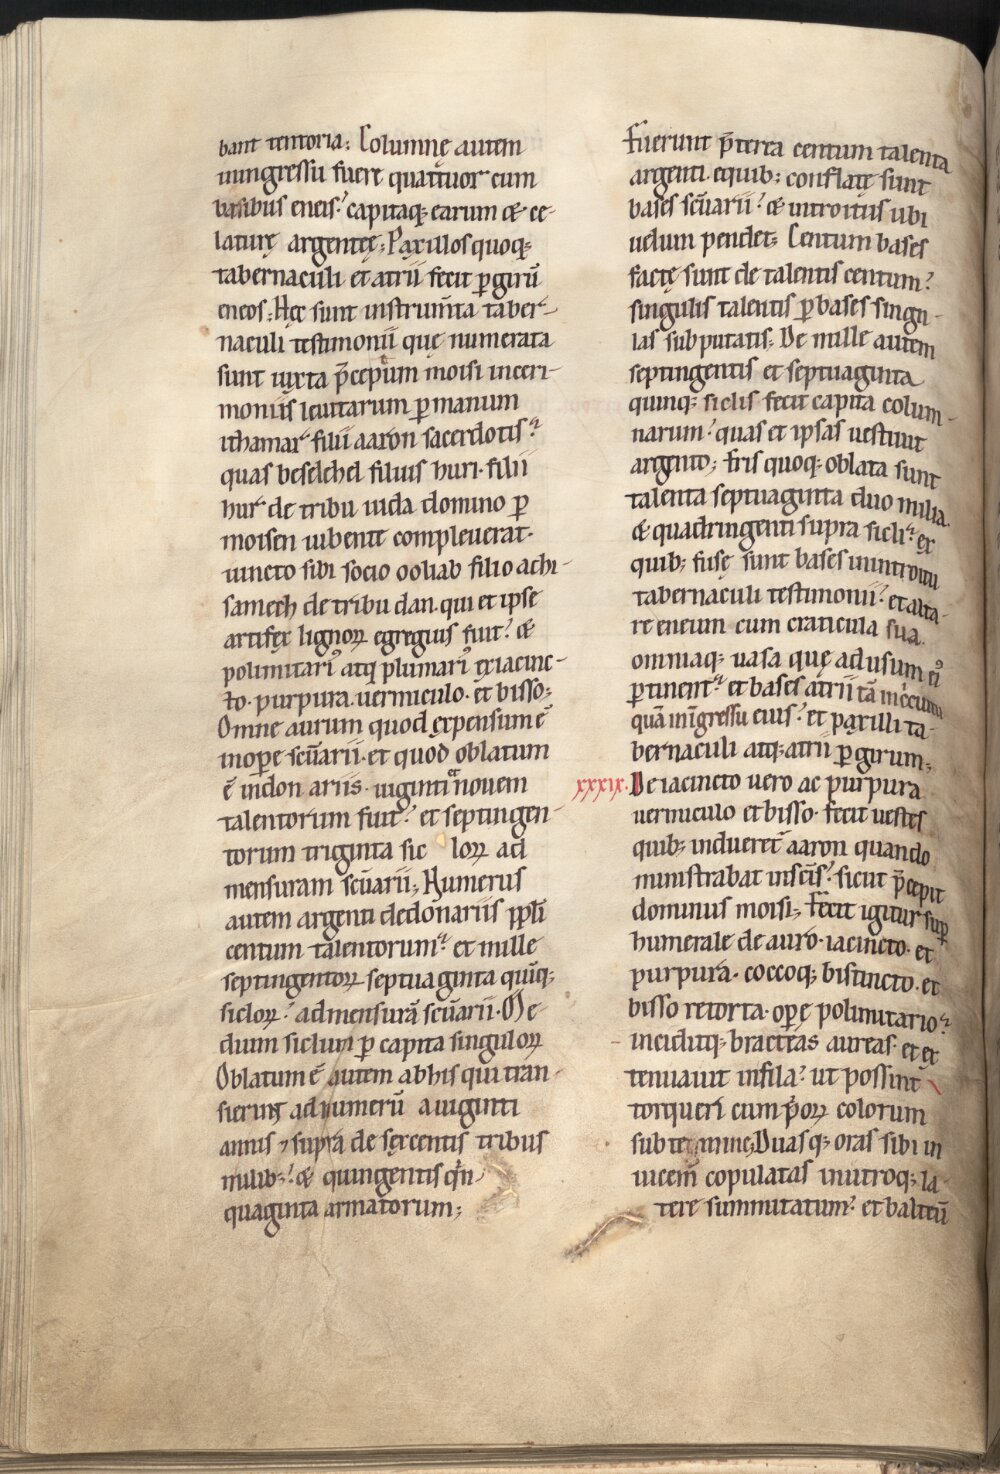 bant tentoria; Columnę autem
iningressu fuere quattuor cum
basibus eneis? capitaq; earum & ce-
laturę argentęę; Paxillos quoq;
tabernaculi et atrii fecit ꝑ girū
eneos; Hęc sunt instrum̄ta taber-
naculi testimonii quę numerata
sunt iuxta p̄ceptum moisi inceri-
moniis leuitarum ꝑ manum
ithamar filii aaron sacerdotis?
quas beselehel filius huri filii
hur de tribu iuda domino ꝑ
moisen iubente compleuerat.
iuncto sibi socio ooliab filio achi-
samech de tribu dan. qui et ipse
artifex lignoꝝ egregius fuit? &
polimitari᾿ atq; plumari᾿ ex iacinc-
to. purpura. uermiculo. et bisso;
Omne aurum quod expensum ē
inope scūarii. et quod oblatum
ē indon ariis. uiginti nouem
talentorum fuit? et septingen-
torum triginta sic loꝝ ad
mensuram scūarii; Humerus
autem argenti dedonariis ppłi
centum talentorum? et mille
septingentoꝝ septuaginta quīq;
sicloꝝ? ad mensurā scūarii. Me-
dium siclum ꝑ capita singuloꝝ
Oblatum ē autem ab his qui tran-
sierint ad numerū a uiginti
annis ⁊ supra de sexcentis tribus
milib;? & quingentis q̄n
quaginta armatorum;
Fuerunt p̄terea centum talenta
argenti. e quib; conflatę sunt
bases scūarii? & introitus ubi
uelum pendet; Centum bases
factę sunt de talentis centum?
singulis talentis ꝑ bases singu-
las subputatis; De mille autem
septingentis et septuaginta
quinq; siclis fecit capita colum-
narum? quas et ipsas uestiuit
argento; Eris quoq; oblata sunt
talenta septuaginta duo milia
& quadringenti supra sicli? ex
quib; fusę sunt bases inintroitu
tabernaculi testimonii? et alta-
re eneum cum craticula sua.
omniaq; uasa quę ad usum ei᾿
ꝑtinent? et bases atrii tā incircuitu
quā in̄gressu eius? et paxilli ta-
bernaculi atq; atrii ꝑ girum;
xxxix. De iacincto uero ac purpura
uermiculo et bisso. fecit uestes
quib; indueret᾿ aaron quando
ministrabat inscīs? sicut p̄cepit
dominus moisi; Fecit igitur suꝑ
humerale de auro. iacincto. et
purpura. coccoq; bistincto. et
bisso retorta. opere polimitario?
inciditq; bracteas aureas. et ex
tenuauit infila? ut possint
torqueri cum p̄oꝝ colorum
subtegmine; Duasq; oras sibi in
uicem copulatas inutroq; la
tere summitatum? et balteū